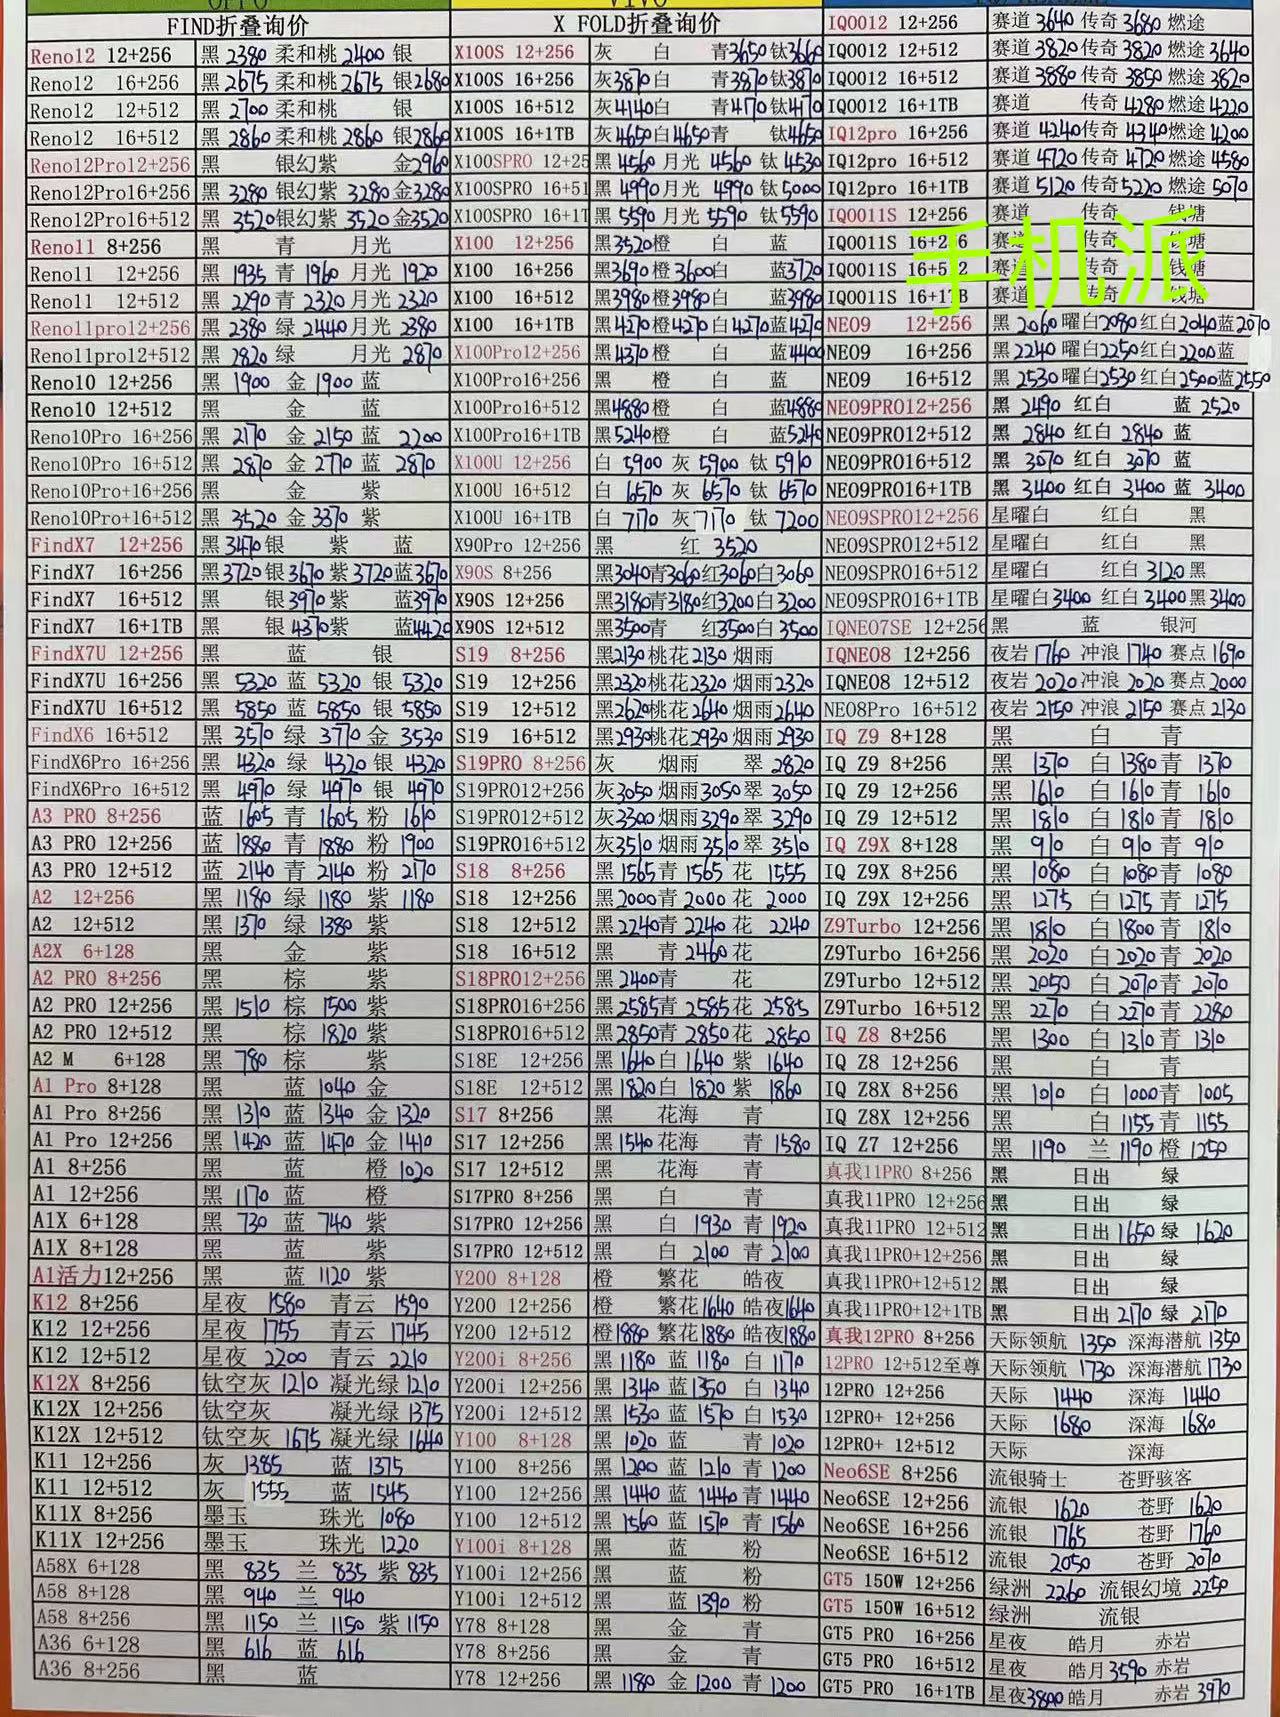 OPPO
FIND折叠询价
Reno12 12+256 黑 2380 柔和桃 2400 银
Reno12 16+256 黑 2675 柔和桃 2675 银 2680
Reno12 12+512 黑 2700 柔和桃 银
Reno12 16+512 黑 2860 柔和桃 2860 银 2860
Reno12Pro12+256 黑 银幻紫 金 2960
Reno12Pro16+256 黑 3280 银幻紫 3280 金 3280
Reno12Pro16+512 黑 3520 银幻紫 3520 金 3520
Reno11 8+256 黑 青 月光
Reno11 12+256 黑 1935 青 1960 月光 1920
Reno11 12+512 黑 2290 青 2320 月光 2320
Reno11pro12+256 黑 2380 绿 2440 月光 2380
Reno11pro12+512 黑 2820 绿 月光 2870
Reno10 12+256 黑 1900 金 1900 蓝
Reno10 12+512 黑 金 蓝
Reno10Pro 16+256 黑 2170 金 2150 蓝 2200
Reno10Pro 16+512 黑 2870 金 2770 蓝 2870
Reno10Pro+16+256 黑 金 紫
Reno10Pro+16+512 黑 3520 金 3370 紫
FindX7 12+256 黑 3470 银 紫 蓝
FindX7 16+256 黑 3720 银 3670 紫 3720 蓝 3670
FindX7 16+512 黑 银 3970 紫 蓝 3970
FindX7 16+1TB 黑 银 4370 紫 蓝 4420
FindX7U 12+256 黑 蓝 银
FindX7U 16+256 黑 5320 蓝 5320 银 5320
FindX7U 16+512 黑 5850 蓝 5850 银 5850
FindX6 16+512 黑 3570 绿 3770 金 3530
FindX6Pro 16+256 黑 4320 绿 4320 银 4320
FindX6Pro 16+512 黑 4970 绿 4970 银 4970
A3 PRO 8+256 蓝 1605 青 1605 粉 1610
A3 PRO 12+256 蓝 1880 青 1880 粉 1900
A3 PRO 12+512 蓝 2140 青 2140 粉 2170
A2 12+256 黑 1180 绿 1180 紫 1180
A2 12+512 黑 1370 绿 1380 紫
A2X 6+128 黑 金 紫
A2 PRO 8+256 黑 棕 紫
A2 PRO 12+256 黑 1510 棕 1500 紫
A2 PRO 12+512 黑 棕 1820 紫
A2 M 6+128 黑 780 棕 紫
A1 Pro 8+128 黑 蓝 1040 金
A1 Pro 8+256 黑 1310 蓝 1340 金 1320
A1 Pro 12+256 黑 1420 蓝 1470 金 1410
A1 8+256 黑 蓝 橙 1020
A1 12+256 黑 1170 蓝 橙
A1X 6+128 黑 730 蓝 740 紫
A1X 8+128 黑 蓝 紫
A1活力12+256 黑 蓝 1120 紫
K12 8+256 星夜 1580 青云 1590
K12 12+256 星夜 1755 青云 1745
K12 12+512 星夜 2200 青云 2210
K12X 8+256 钛空灰 1210 凝光绿 1210
K12X 12+256 钛空灰 凝光绿 1375
K12X 12+512 钛空灰 1675 凝光绿 1640
K11 12+256 灰 1385 蓝 1375
K11 12+512 灰 1555 蓝 1545
K11X 8+256 墨玉 珠光 1080
K11X 12+256 墨玉 珠光 1220
A58X 6+128 黑 835 兰 835 紫 835
A58 8+128 黑 940 兰 940
A58 8+256 黑 1150 兰 1150 紫 1150
A36 6+128 黑 616 蓝 616
A36 8+256 黑 蓝
VIVO
X FOLD折叠询价
X100S 12+256 灰 白 青 3650 钛 3660
X100S 16+256 灰 3870 白 青 3870 钛 3870
X100S 16+512 灰 4140 白 青 4170 钛 4170
X100S 16+1TB 灰 4650 白 4650 青 钛 4650
X100SPRO 12+25 黑 4560 月光 4560 钛 4530
X100SPRO 16+51 黑 4990 月光 4990 钛 5000
X100SPRO 16+1T 黑 5590 月光 5590 钛 5590
X100 12+256 黑 3520 橙 白 蓝
X100 16+256 黑 3690 橙 3600 白 蓝 3720
X100 16+512 黑 3980 橙 3980 白 蓝 3980
X100 16+1TB 黑 4270 橙 4270 白 4270 蓝 4270
X100Pro12+256 黑 4370 橙 白 蓝 4400
X100Pro16+256 黑 橙 白 蓝
X100Pro16+512 黑 4880 橙 白 蓝 4880
X100Pro16+1TB 黑 5240 橙 白 蓝 5240
X100U 12+256 白 5900 灰 5900 钛 5910
X100U 16+512 白 6570 灰 6570 钛 6570
X100U 16+1TB 白 7170 灰 7170 钛 7200
X90Pro 12+256 黑 红 3520
X90S 8+256 黑 3040 青 3060 红 3060 白 3060
X90S 12+256 黑 3180 青 3180 红 3200 白 3200
X90S 12+512 黑 3500 青 红 3500 白 3500
S19 8+256 黑 2130 桃花 2130 烟雨
S19 12+256 黑 2320 桃花 2320 烟雨 2320
S19 12+512 黑 2620 桃花 2640 烟雨 2640
S19 16+512 黑 2930 桃花 2930 烟雨 2930
S19PRO 8+256 灰 烟雨 翠 2820
S19PRO12+256 灰 3050 烟雨 3050 翠 3050
S19PRO12+512 灰 3300 烟雨 3290 翠 3290
S19PRO16+512 灰 3510 烟雨 3510 翠 3510
S18 8+256 黑 1565 青 1565 花 1555
S18 12+256 黑 2000 青 2000 花 2000
S18 12+512 黑 2240 青 2240 花 2240
S18 16+512 黑 青 2460 花
S18PRO12+256 黑 2400 青 花
S18PRO16+256 黑 2585 青 2585 花 2585
S18PRO16+512 黑 2850 青 2850 花 2850
S18E 12+256 黑 1640 白 1640 紫 1640
S18E 12+512 黑 1820 白 1820 紫 1860
S17 8+256 黑 花海 青
S17 12+256 黑 1540 花海 青 1580
S17 12+512 黑 花海 青
S17PRO 8+256 黑 白 青
S17PRO 12+256 黑 白 1930 青 1920
S17PRO 12+512 黑 白 2100 青 2100
Y200 8+128 橙 繁花 皓夜
Y200 12+256 橙 繁花 1640 皓夜 1640
Y200 12+512 橙 1880 繁花 1880 皓夜 1880
Y200i 8+256 黑 1180 蓝 1180 白 1170
Y200i 12+256 黑 1340 蓝 1350 白 1340
Y200i 12+512 黑 1530 蓝 1570 白 1530
Y100 8+128 黑 1020 蓝 青 1020
Y100 8+256 黑 1200 蓝 1210 青 1200
Y100 12+256 黑 1440 蓝 1440 青 1440
Y100 12+512 黑 1560 蓝 1570 青 1560
Y100i 8+128 黑 蓝 粉
Y100i 12+256 黑 蓝 粉
Y100i 12+512 黑 蓝 1390 粉
Y78 8+128 黑 金 青
Y78 8+256 黑 金 青
Y78 12+256 黑 1180 金 1200 青 1200
IQ0012 12+256 赛道 3640 传奇 3680 燃途
IQ0012 12+512 赛道 3820 传奇 3820 燃途 3640
IQ0012 16+512 赛道 3880 传奇 3850 燃途 3820
IQ0012 16+1TB 赛道 传奇 4280 燃途 4220
IQ12pro 16+256 赛道 4240 传奇 4340 燃途 4200
IQ12pro 16+512 赛道 4720 传奇 4720 燃途 4580
IQ12pro 16+1TB 赛道 5120 传奇 5220 燃途 5070
IQ0011S 12+256 赛道 传奇 钱塘
IQ0011S 16+256 赛道 传奇 钱塘
IQ0011S 16+512 赛道 传奇 钱塘
IQ0011S 16+1TB 赛道 传奇 钱塘
手机派
NEO9 12+256 黑 2060 曜白 2080 红白 2040 蓝 2070
NEO9 16+256 黑 2240 曜白 2250 红白 2200 蓝
NEO9 16+512 黑 2530 曜白 2530 红白 2500 蓝 2550
NEO9PRO12+256 黑 2490 红白 蓝 2520
NEO9PRO12+512 黑 2840 红白 2840 蓝
NEO9PRO16+512 黑 3070 红白 3070 蓝
NEO9PRO16+1TB 黑 3400 红白 3400 蓝 3400
NEO9SPRO12+256 星曜白 红白 黑
NEO9SPRO12+512 星曜白 红白 黑
NEO9SPRO16+512 星曜白 红白 3120 黑
NEO9SPRO16+1TB 星曜白 3400 红白 3400 黑 3400
IQNEO7SE 12+256 黑 蓝 银河
IQNEO8 12+256 夜岩 1760 冲浪 1740 赛点 1690
IQNEO8 12+512 夜岩 2020 冲浪 2020 赛点 2000
NEO8Pro 16+512 夜岩 2150 冲浪 2150 赛点 2130
IQ Z9 8+128 黑 白 青
IQ Z9 8+256 黑 1370 白 1380 青 1370
IQ Z9 12+256 黑 1610 白 1610 青 1610
IQ Z9 12+512 黑 1810 白 1810 青 1810
IQ Z9X 8+128 黑 910 白 910 青 910
IQ Z9X 8+256 黑 1080 白 1080 青 1080
IQ Z9X 12+256 黑 1275 白 1275 青 1275
Z9Turbo 12+256 黑 1810 白 1800 青 1810
Z9Turbo 16+256 黑 2020 白 2020 青 2020
Z9Turbo 12+512 黑 2050 白 2070 青 2070
Z9Turbo 16+512 黑 2270 白 2270 青 2280
IQ Z8 8+256 黑 1300 白 1310 青 1310
IQ Z8 12+256 黑 白 青
IQ Z8X 8+256 黑 1010 白 1000 青 1005
IQ Z8X 12+256 黑 白 1155 青 1155
IQ Z7 12+256 黑 1190 兰 1190 橙 1250
真我11PRO 8+256 黑 日出 绿
真我11PRO 12+256 黑 日出 绿
真我11PRO 12+512 黑 日出 1650 绿 1620
真我11PRO+12+256 黑 日出 绿
真我11PRO+12+512 黑 日出 绿
真我11PRO+12+1TB 黑 日出 2170 绿 2170
真我12PRO 8+256 天际领航 1350 深海潜航 1350
12PRO 12+512至尊 天际领航 1730 深海潜航 1730
12PRO 12+256 天际 1440 深海 1440
12PRO+ 12+256 天际 1680 深海 1680
12PRO+ 12+512 天际 深海
Neo6SE 8+256 流银骑士 苍野骇客
Neo6SE 12+256 流银 1620 苍野 1620
Neo6SE 16+256 流银 1765 苍野 1760
Neo6SE 16+512 流银 2050 苍野 2070
GT5 150W 12+256 绿洲 2260 流银幻境 2250
GT5 150W 16+512 绿洲 流银
GT5 PRO 16+256 星夜 皓月 赤岩
GT5 PRO 16+512 星夜 皓月 3590 赤岩
GT5 PRO 16+1TB 星夜 3800 皓月 赤岩 3970